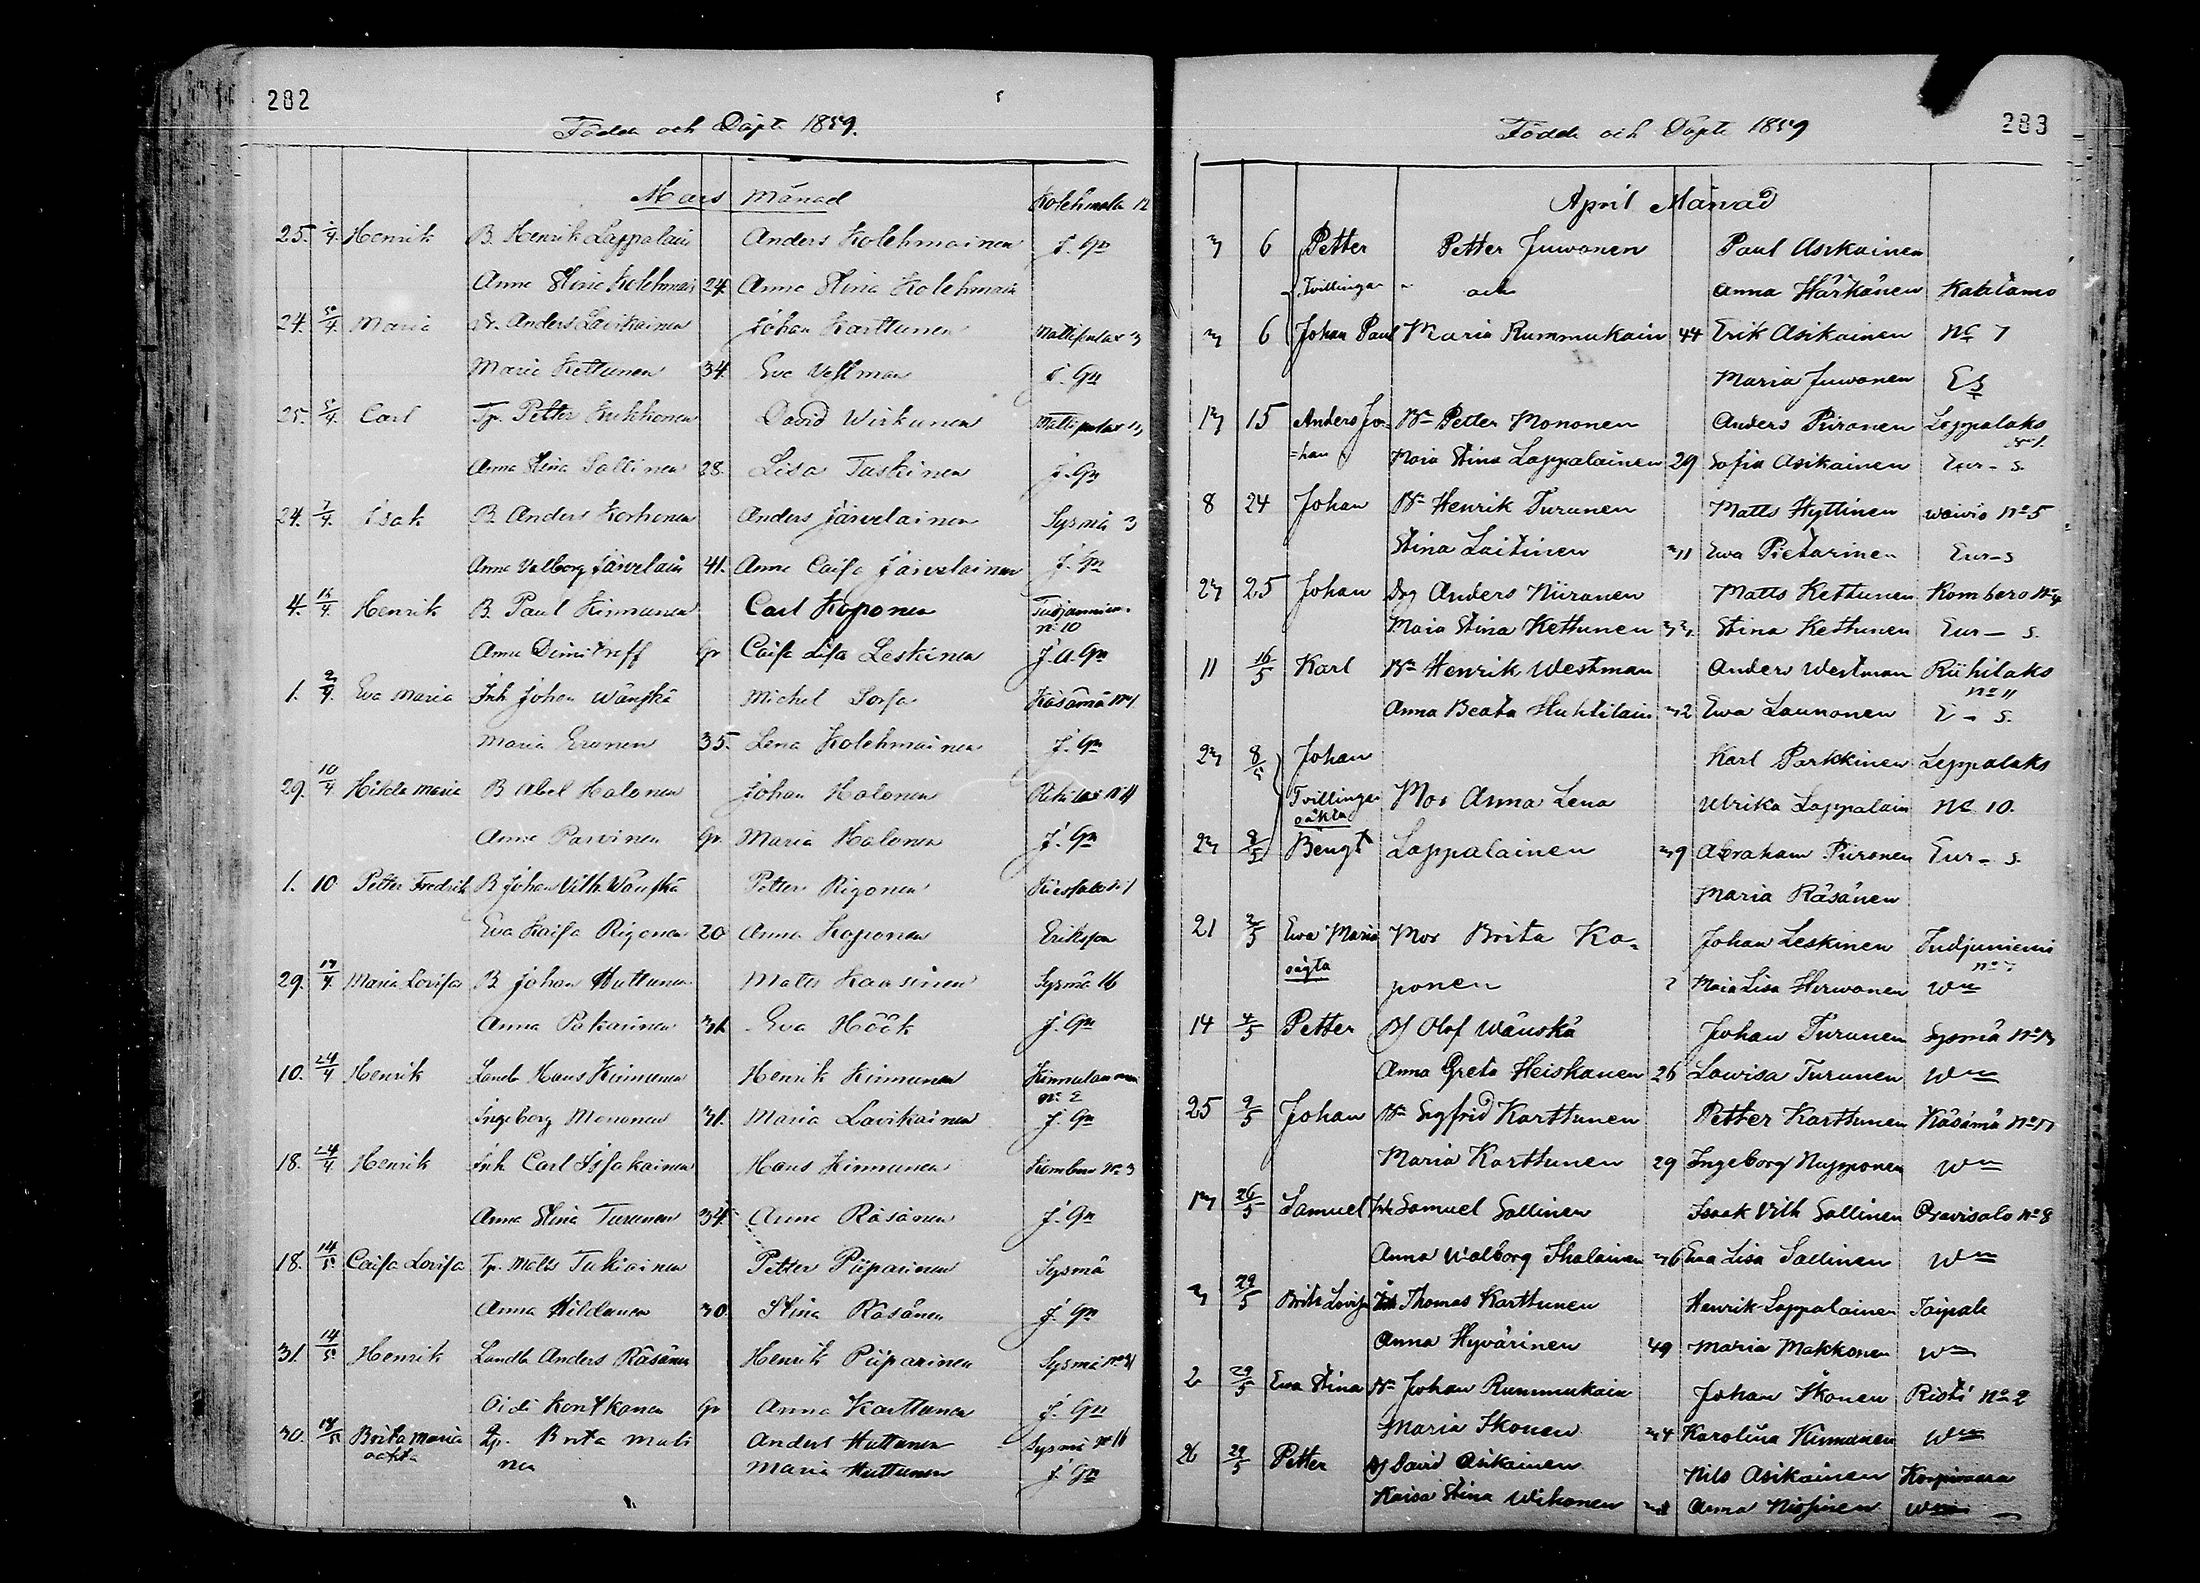 282
Födde och Döpte 1859.
Mars Månad Kolehmala 12
25. 1/4. Henrik B. Henrik Lappalain Anders Kolehmainen J. Gn
Anna Stina Kolehmain 24. Anna Stina Kolehmain
24. Maria Anders Lavikainen Johan Karttunen 3
Maria Kettunen 34. Eva Vestman J. Gn
25. 5/4. Carl Tp. Petter Kukkonen David Wirkunen
Anna Stina Sallinen 28. Lisa Taskinen J. Gn
24. 7/4. Isak B. Anders Korhonen Anders Järvelainen Sysmä 3
Anna Valborg Järvelain 41. Anna Caisa Järvelainen J. Gn
4. 16/4. Henrik B. Paul Kinnunen Carl Koponen Tudjunniemi
no 10
Anna Dimitreff Gr Caisa Lisa Leskinen J. a. Gn
1. Eva Maria Inh Johan Wänskä Michel Sorsa Käsämä
Maria Eronen 35. Lena Kolehmainen J. Gn
29. 10/4. Hilda Maria B Abel Halonen Johan Halonen
Anna Parvinen Gr. Maria Halonen J. Gn
1. 10 Petter Fredrik B Johan Vilh Wänskä Petter Rigonen
Eva Kaisa Rigonen 20 Anna Koponen Eriksson
29. 17/4. Maria Lovisa B Johan Huttunen Matts Kaasinen Sysmä 16
Anna Pakarinen 31. Eva Höök J. Gn
10. 24/4 Henrik Landb Hans Kinnunen Henrik Kinnunen Kinnulan
no 2
Ingeborg Mononen 31. Maria Lavikainen J. Gn
18. 24/4. Henrik Inh Carl Issakainen Hans Kinnunen No 3
Anna Stina Turunen 34. Anna Räsänen J. Gn
18. 14/5. Caisa Lovisa Tp. Matts Tukiainen Petter Piiparinen Sysmä
Anna Hildunen 30. Stina Räsänen J. Gn
31. 14/5. Henrik Landb Anders Räsänen Henrik Piiparinen Sysmä
Kontkanen Gr Anna Karttunen J. Gn
30. Brita Maria Brita Muti Anders Huttunen Sysmä no 16
oäkta nen Maria Huttunen J. Gn
283
Födde och Döpte 1859
April Månad
3 6 Petter Petter Juvonen Paul Asikainen
Tvillingar och Anna Härkönen Kalilamo
3 6 Johan Paul Maria Rummukain 44 Erik Asikainen No 7
Maria Juvonen E S
13 15 Anders Jo- Bn Petter Mononen Anders Piironen Leppälaks
=han Maia Stina Lappalainen 29 Sofia Asikainen Eur - S.
8 24 Johan Bn Henrik Turunen Matts Hyttinen Waivio No 5
Stina Laitinen 31 Ewa Pietarinen Eur - S
23 25 Johan Drg Anders Niiranen Matts Kettunen Kompero No 4
Maia Stina Kettunen 33 Stina Kettunen Eur - S.
11 16/5 Karl Bn Henrik Westman Anders Westman Riihilaks
no 11
Anna Beata Huhtilain 32 Ewa Launonen E - S.
23 8/5 Johan Karl Parkkinen Leppälaks
Tvillingar Mor Anna Lena Ulrika Lappalain No 10.
oäkta
23 8/5 Bengt Lappalainen 39 Abraham Piironen Eur - S.
Maria Räsänen
21 2/5 Ewa Maria Mor Brita Ko= Johan Leskinen Tudjuniemi
oägta no 7
ponen ? Maia Lisa Hirvonen Wn
14 4/5 Petter Olof Wänskä Johan Turunen Sysmä No 13
Anna Greta Heiskanen 26 Lovisa Turunen Wn
25 9/5 Johan Bn Sigfrid Karttunen Petter Karttunen Käsämä
Maria Karttunen 29 Ingeborg Nupponen Wn
13 26/5 Samuel Inh Samuel Sallinen Isaak Vilh Sallinen Oravisalo No 8
Anna Walborg Ihalainen 36 Ewa Lisa Sallinen Wn
3 29/5 Brita Lovisa Thomas Karttunen Henrik Lappalainen Taipale
Anna Hyvärinen 49 Maria Makkonen Wn
2 29/5 Ewa Stina Bn Johan Rummukain Johan Ikonen Risti No 2
Maria Ikonen 34 Karolina Kinnunen Wn
26 29/5 Petter David Asikainen Nils Asikainen Korpivaara
Kaisa Stina Wihonen Anna Nissinen Wn